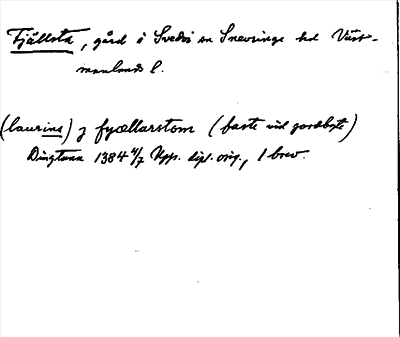 Fjällsta, gård i Svedvi sn Snevringe hd Väst-
manlands l.
(laurins) j fyællarstom (faste vid jordbyte)
Dingtuna 1384 4/7 Upp. dipl. orig., 1 brev.